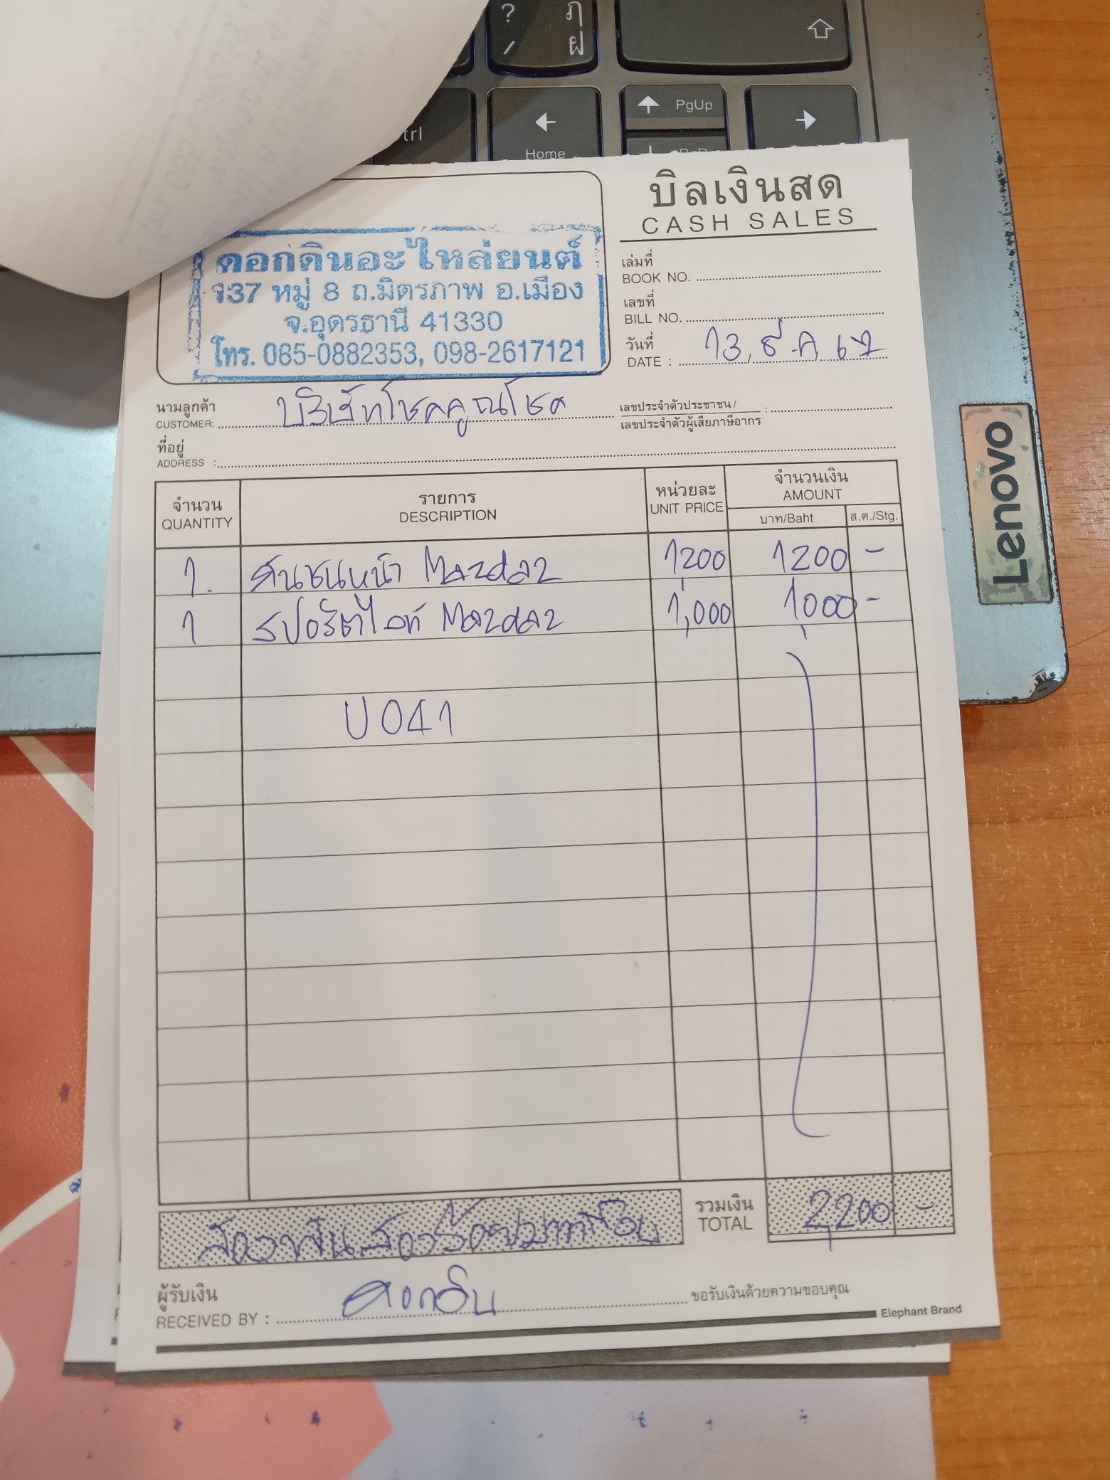 ?
/
ฦ
ฝ
PgUp
trl
Home
บิลเงินสด
CASH SALES
ดอกดินอะไหล่ยนต์
137 หมู่ 8 ถ.มิตรภาพ อ.เมือง
จ.อุดรธานี 41330
โทร. 085-0882353, 098-2617121
เล่มที่
BOOK NO.
เลขที่
BILL NO.
วันที่
DATE : 13, ธ.ค 67
นามลูกค้า
CUSTOMER: บริษัทโชคคูณโชค
เลขประจำตัวประชาชน /
เลขประจำตัวผู้เสียภาษีอากร :
ที่อยู่
ADDRESS :
จำนวน รายการ หน่วยละ จำนวนเงิน
QUANTITY DESCRIPTION UNIT PRICE AMOUNT
บาท/Baht ส.ต./Stg.
1 คันชนหน้า Mazda2 1200 1200 -
1 สปอร์ตไลท์ Mazda2 1,000 1,000 -
U041
สองพันสองร้อยบาทถ้วน รวมเงิน TOTAL 2,200 -
ผู้รับเงิน
RECEIVED BY : ดอกดิน ขอรับเงินด้วยความขอบคุณ
Elephant Brand
Lenovo